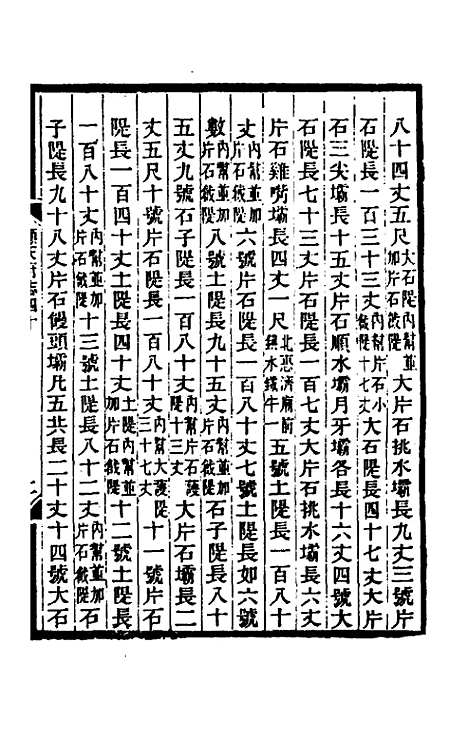 八十四丈五尺大石隄內幫並加片石戧隄大片石挑水壩長九丈三號片
石隄長一百三十三丈內幫片石小戧隄十七丈大石隄長四十七丈大片
石三尖壩長十五丈片石順水壩月牙壩各長十六丈四號大
石隄長七十三丈片石隄長一百七丈大片石挑水壩長六丈
片石雞嘴壩長四丈一尺北惡濟廟前鎮水鐵牛一五號石隄長一百八十
丈內幫並加片石戧隄六號片石隄長一百八十丈七號土隄長如六號
數內幫並加片石戧隄八號土隄長九十五丈片石戧隄石子隄長八十
五丈九號石子隄長一百八十丈內幫片石護隄十三丈大片石壩長二
丈五尺十號片石隄長一百八十丈內幫大護隄三十七丈十一號片石
隄長一百四十丈土隄長四十丈土隄內幫並加片石戧隄十二號土隄長
一百八十丈內幫並加片石戧隄十三號土隄長八十二丈內幫並加片石戧隄石
子隄長九十八丈片石饅頭壩凡五共長二十丈十四號大石
順天府志四十